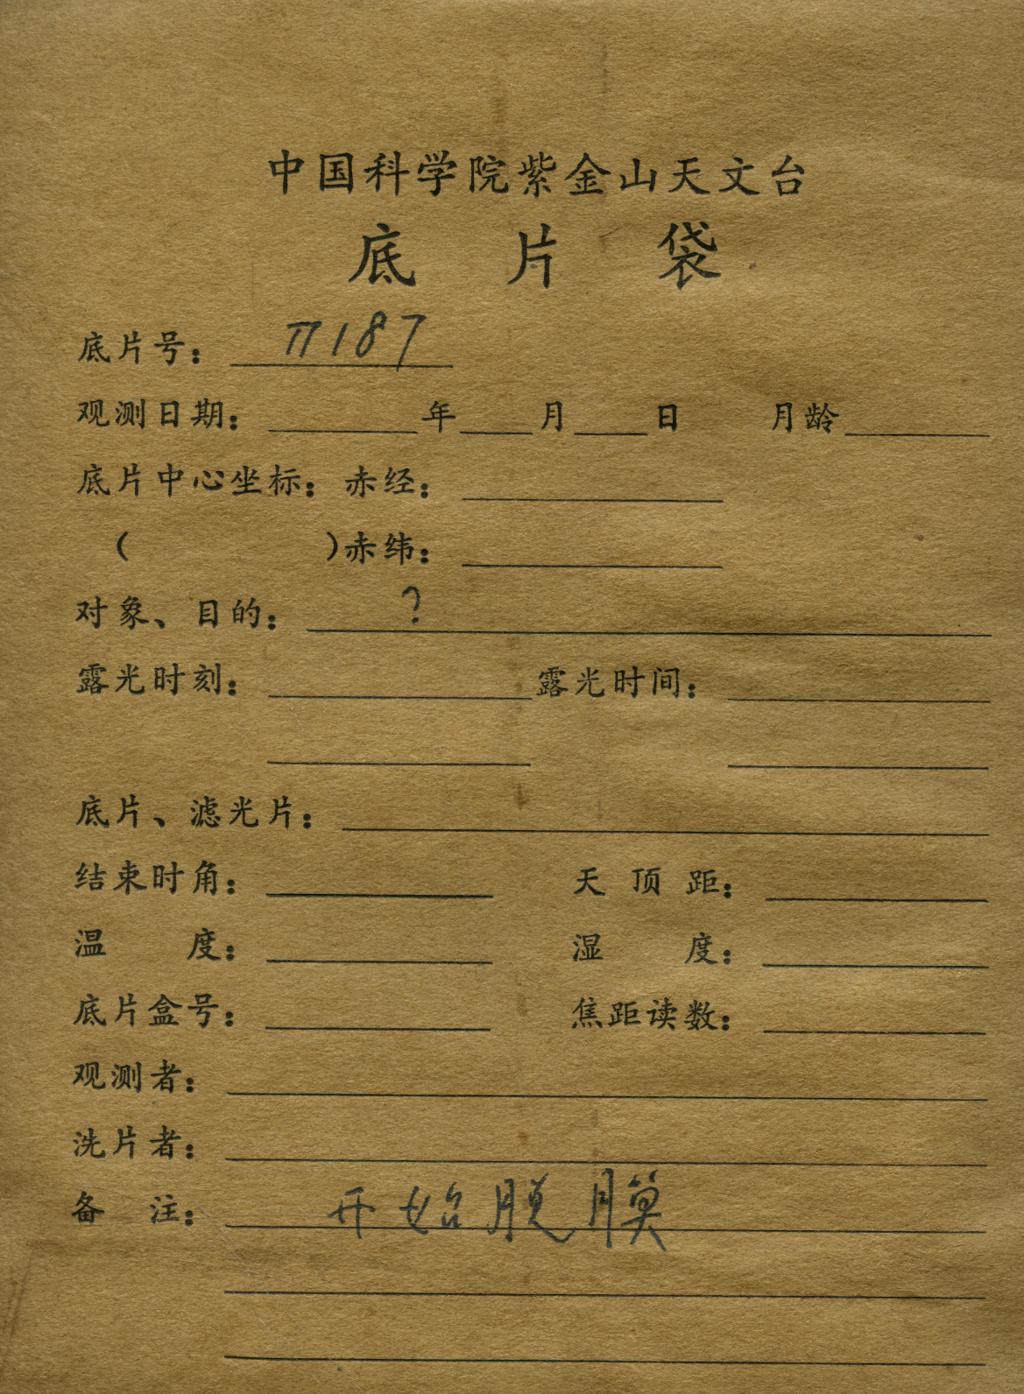 中国科学院紫金山天文台
底片袋
底片号：π187
观测日期： 年 月 日 月龄
底片中心坐标：赤经：
（ ）赤纬：
对象、目的：？
露光时刻： 露光时间：
底片、滤光片：
结束时角： 天顶距：
温度： 湿度：
底片盒号： 焦距读数：
观测者：
洗片者：
备注：开始脱膜